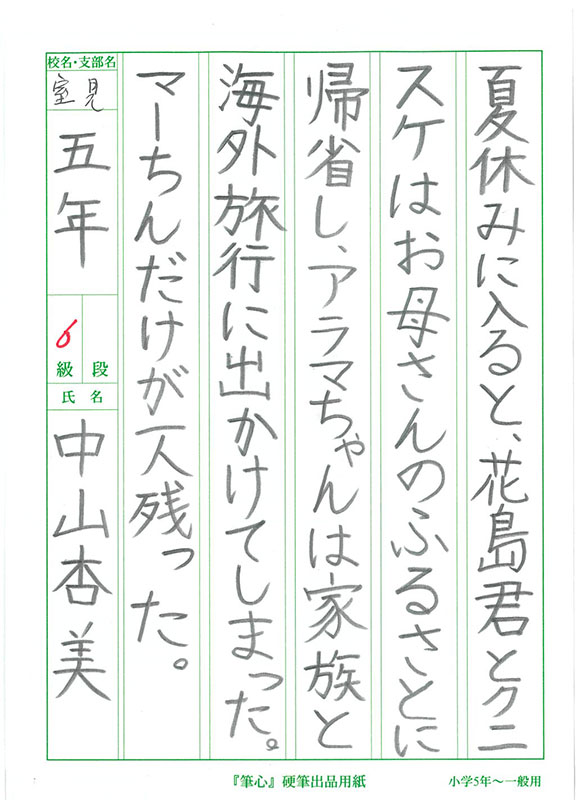 夏休みに入ると、花島君とクニ
スケはお母さんのふるさとに
帰省し、アラマちゃんは家族と
海外旅行に出かけてしまった。
マーちんだけが一人残った。
校名・支部名
室見
五年
6
級 段
氏名
中山杏美
『筆心』硬筆出品用紙
小学5年〜一般用